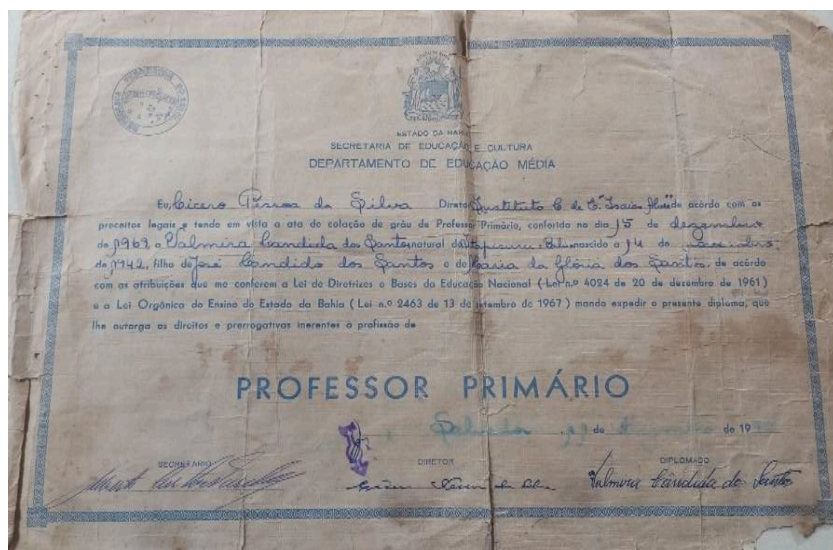 ESTADO DA BAHIA
SECRETARIA DE EDUCAÇÃO E CULTURA
DEPARTAMENTO DE EDUCAÇÃO MÉDIA
Eu, Cicero Pessoa da Silva Diretor Instituto C. de E. Isaias Alves de acôrdo com os
preceitos legais e tendo em vista a ata de colação de gráu de Professor Primário, conferido no dia 15 de dezembro
de 1969 a Valmira Candida dos Santos natural de Itapicuru - Bahia nascido a 14 de
de 1942, filha de José Candido dos Santos e de Maria da Glória dos Santos, de acôrdo
com as atribuições que me conferem a Lei de Diretrizes e Bases da Educação Nacional (Lei n.º 4024 de 20 de dezembro de 1961)
e a Lei Orgânica do Ensino do Estado da Bahia ( Lei n.º 2463 de 13 de setembro de 1967 ) mando expedir o presente diploma, que
lhe outorga os direitos e prerrogativas inerentes à profissão de
PROFESSOR PRIMÁRIO
Salvador, 19 de de 19
SECRETÁRIO DIRETOR DIPLOMADO
Valmira Cândida dos Santos